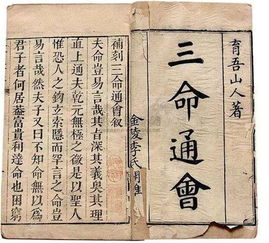 育吾山人著
三命通會
金陵李氏
補刻三命通會敘
夫命豈易言哉其旨深其義奧其理
直上通夫乾元無極之微是以聖人
惟恐人之鉤玄索隱而罕言之命豈
易言哉然夫子又曰不知命無以爲
君子者何居蓋富貴利達命也困窮